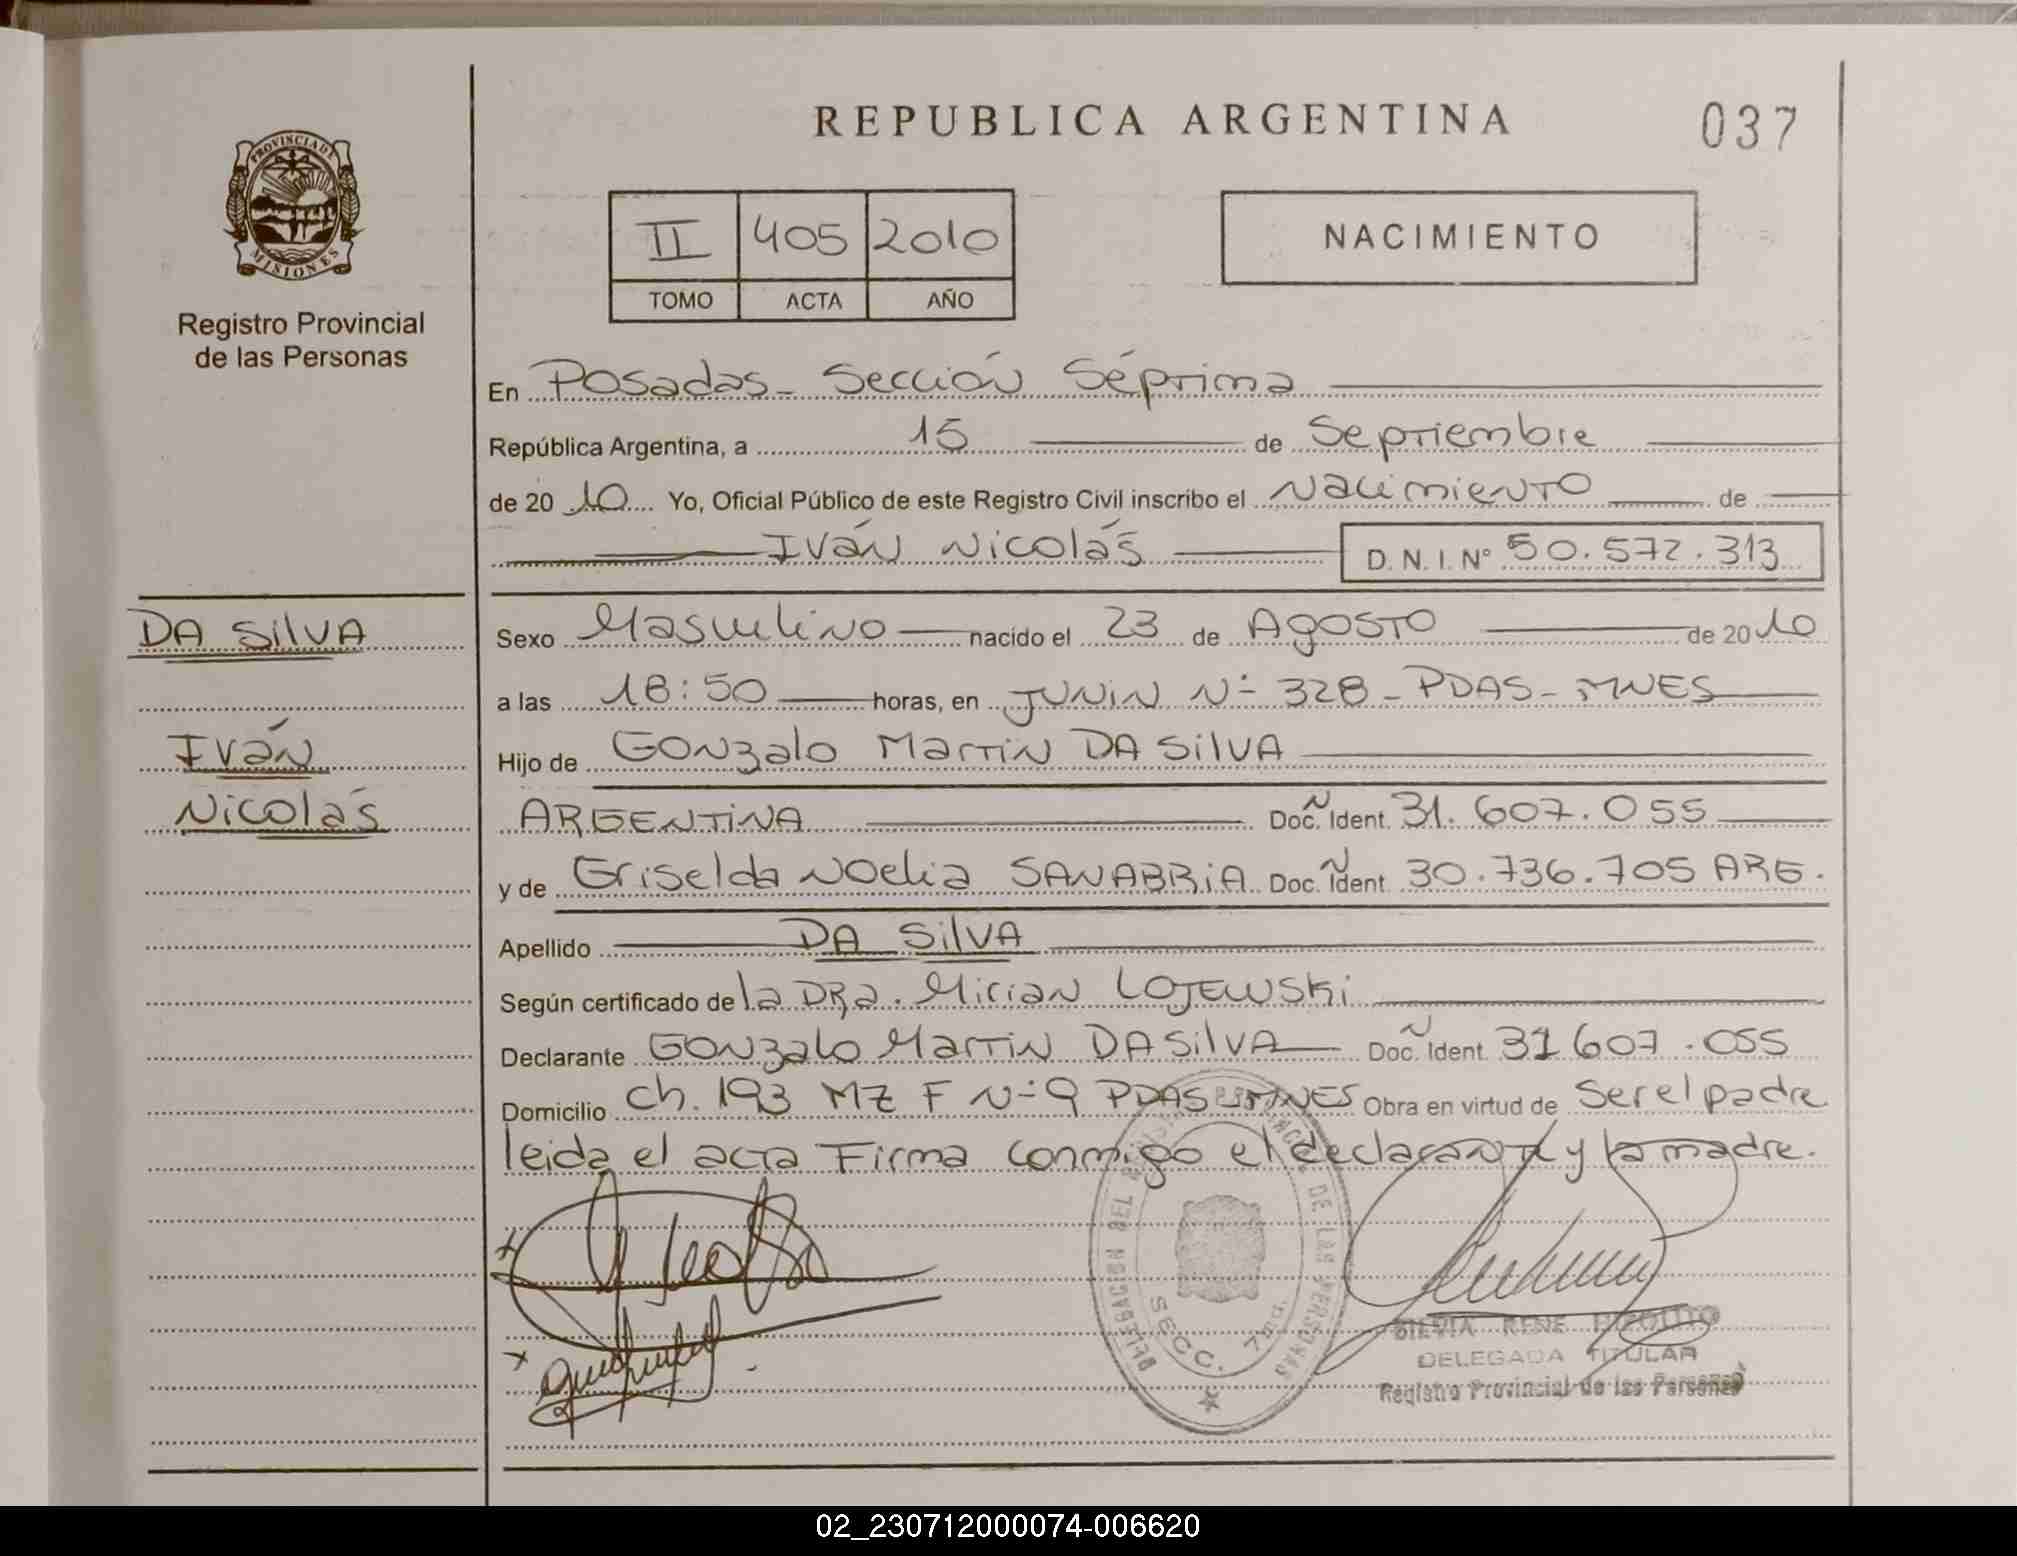 REPUBLICA ARGENTINA
037
PROVINCIA DE
MISIONES
Registro Provincial
de las Personas
II 405 2010
TOMO ACTA AÑO
NACIMIENTO
En Posadas - Sección Séptima
República Argentina, a 15 de Septiembre
de 2010 Yo, Oficial Público de este Registro Civil inscribo el Nacimiento de
Iván Nicolás D. N. I. Nº 50.572.313
DA SILVA
Iván
Nicolás
Sexo Masculino nacido el 23 de Agosto de 2010
a las 18:50 horas, en JUNIN Nº 328 - PDAS - MNES
Hijo de Gonzalo Martin DA SILVA
ARGENTINA Doc. Ident. 31.607.055
y de Griselda Noelia SANABRIA Doc. Ident. 30.736.705 ARG.
Apellido DA SILVA
Según certificado de la DRa. Mirian LOJEWSKI
Declarante Gonzalo Martin DA SILVA Doc. Ident. 31607.055
Domicilio Ch. 193 MZ F Nº 9 PDAS - MNES Obra en virtud de Ser el padre
leida el acta Firma conmigo el declarante y la madre.
SECC. 7ma.
DE LAS PERSONAS
SILVIA RENE HIPOLITO
DELEGADA TITULAR
Registro Provincial de las Personas
02_230712000074-006620